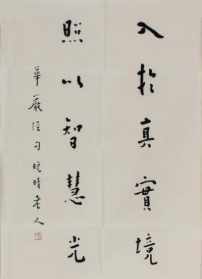 入於真實境
照以智慧光
華嚴經句 晚晴老人